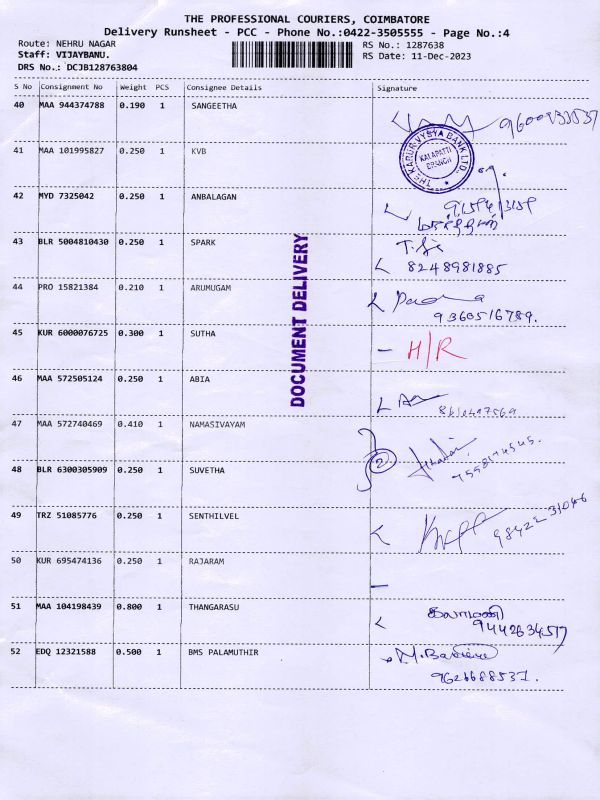 THE PROFESSIONAL COURIERS, COIMBATORE
Delivery Runsheet - PCC - Phone No.:0422-3505555 - Page No.:4
Route: NEHRU NAGAR RS No.: 1287638
Staff: VIJAYBANU. RS Date: 11-Dec-2023
DRS No.: DCJB128763804
S No Consignment No Weight PCS Consignee Details Signature
40 MAA 944374788 0.190 1 SANGEETHA
THE KARUR VYSYA BANK LTD.
KALAPATTI
BRANCH
41 MAA 101995827 0.250 1 KVB
42 MYD 7325042 0.250 1 ANBALAGAN
43 BLR 5004810430 0.250 1 SPARK
8248981885
44 PRO 15821384 0.210 1 ARUMUGAM
9360516789.
45 KUR 6000076725 0.300 1 SUTHA - H/R
46 MAA 572505124 0.250 1 ABIA
47 MAA 572740469 0.410 1 NAMASIVAYAM
2
48 BLR 6300305909 0.250 1 SUVETHA
49 TRZ 51085776 0.250 1 SENTHILVEL
98422 31046
50 KUR 695474136 0.250 1 RAJARAM -
51 MAA 104198439 0.800 1 THANGARASU கலாமணி
9442634517
52 EDQ 12321588 0.500 1 BMS PALAMUTHIR
9626688537.
DOCUMENT DELIVERY